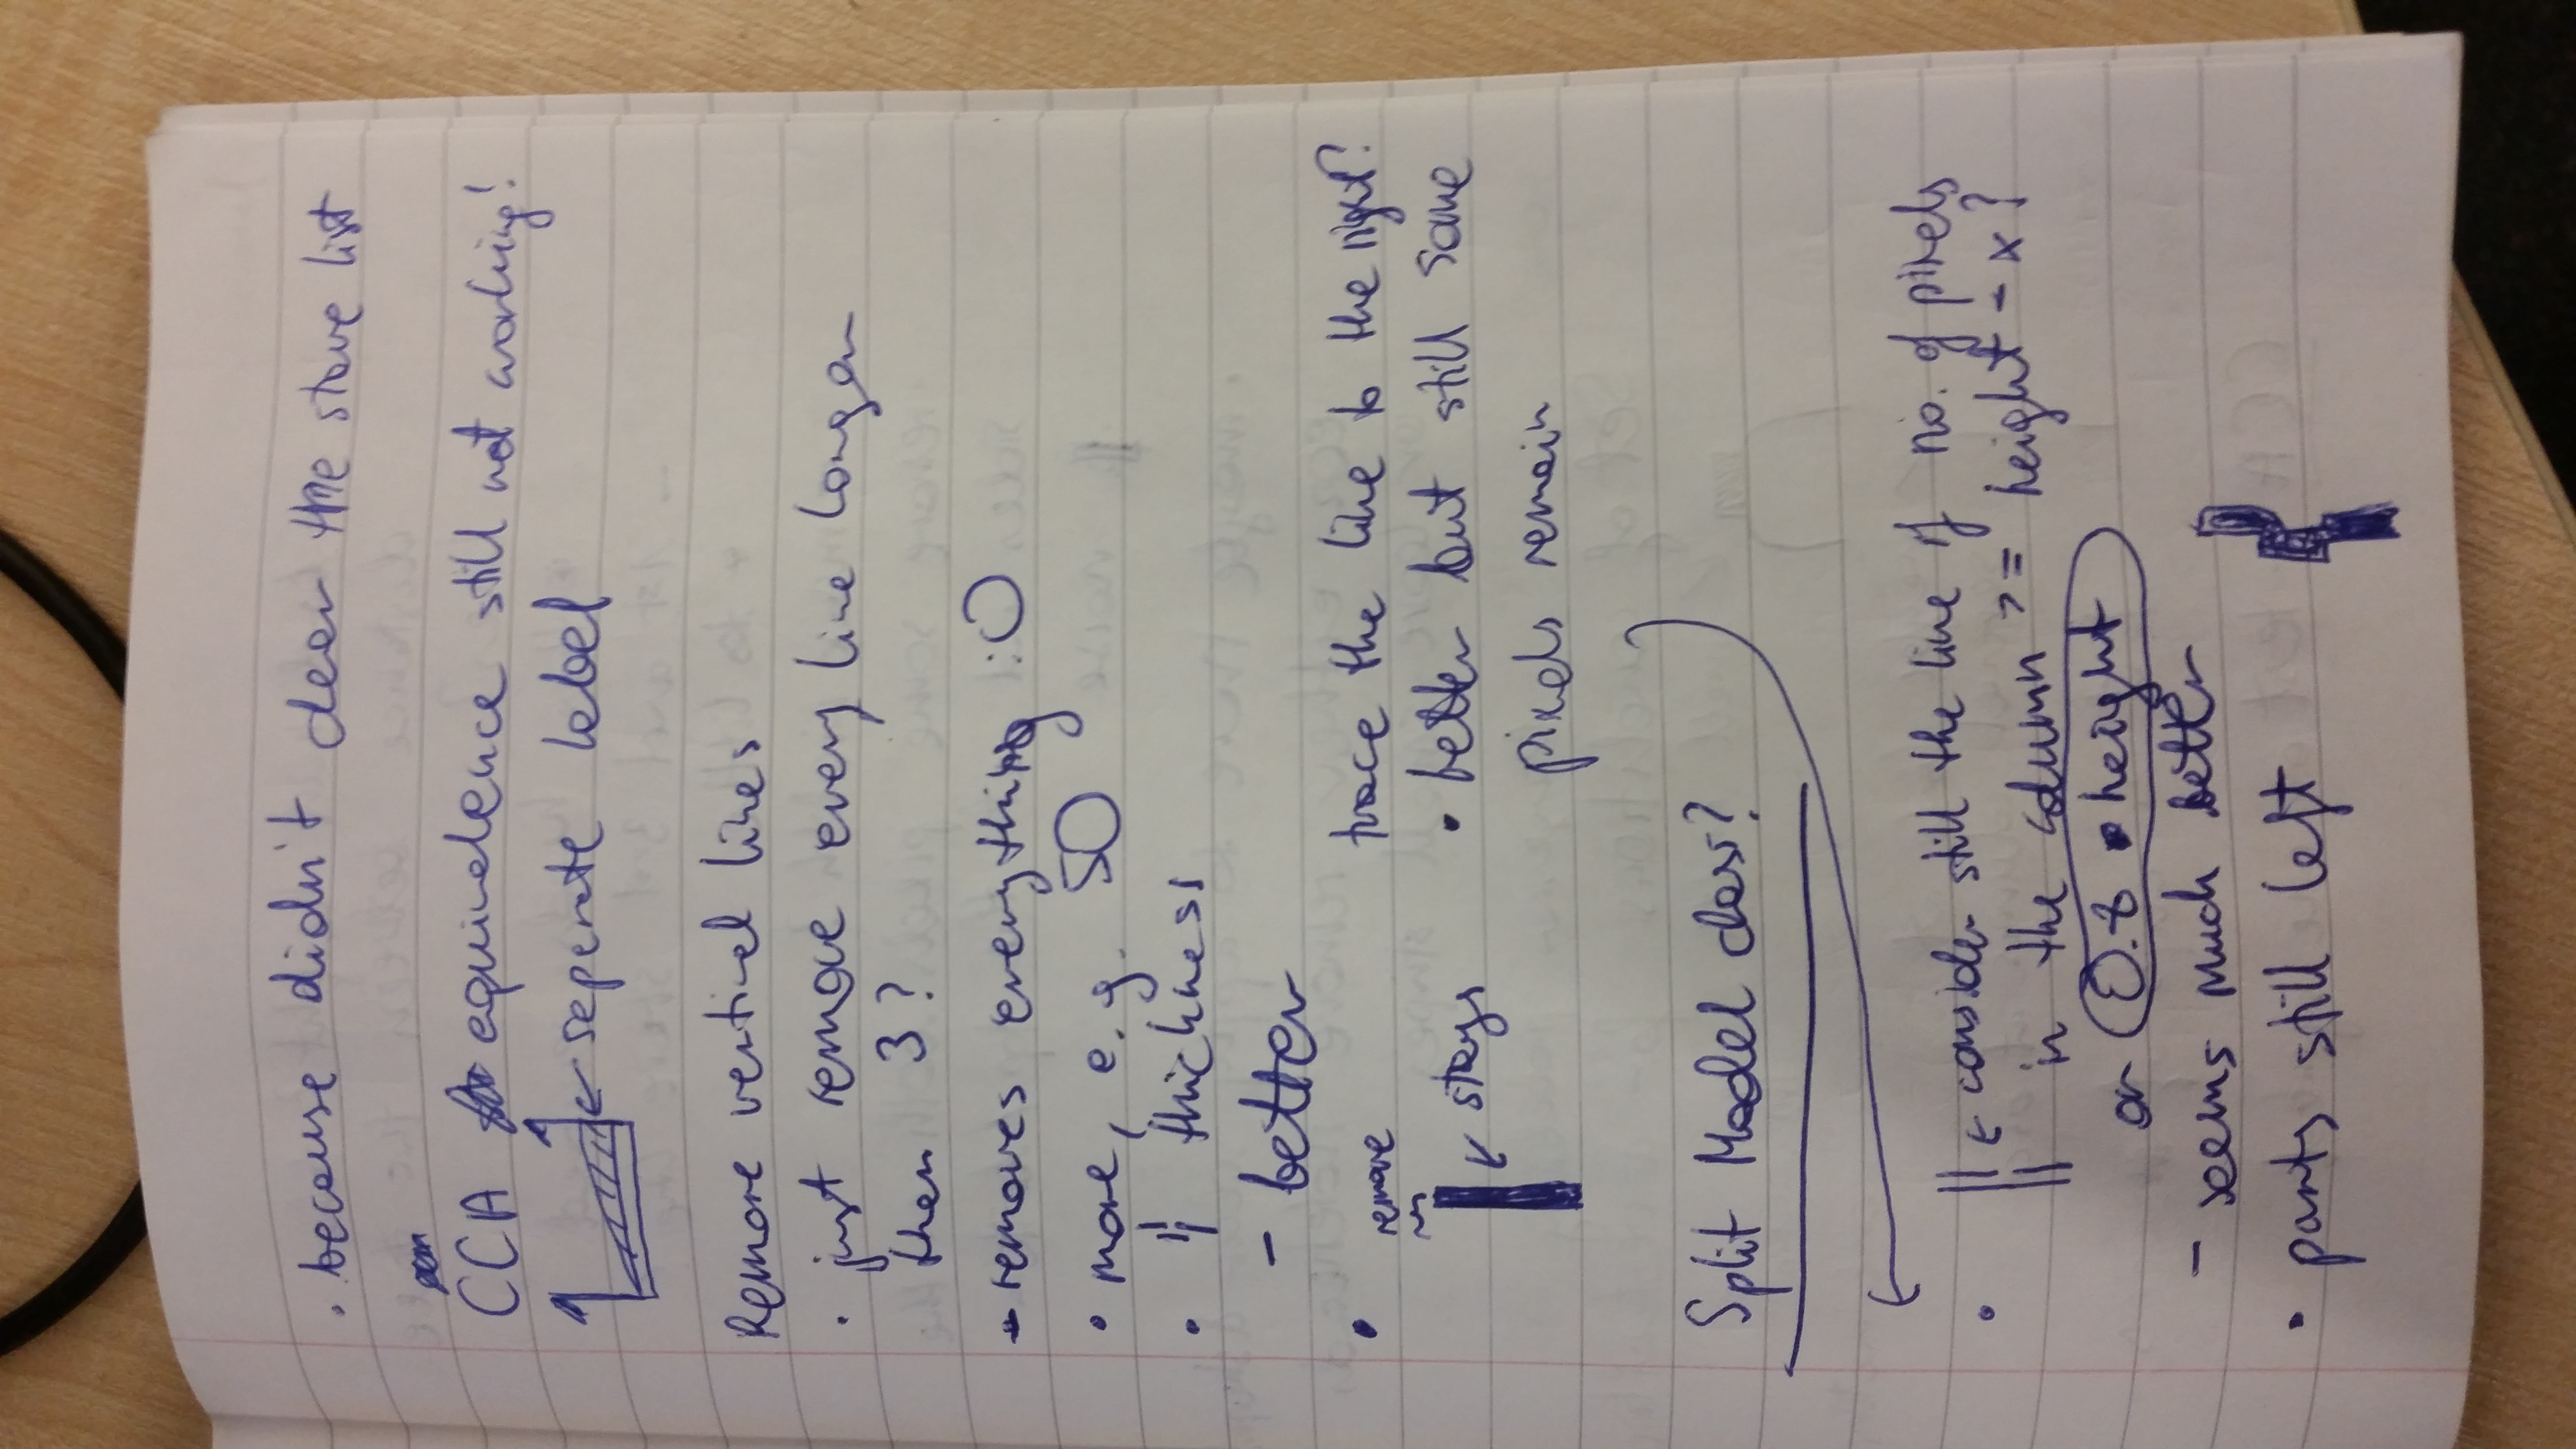 · because didn't clear the stave list
CCA equivalence still not working!
← seperate label
Remove vertical lines
· just remove every line longer
then 3?
- removes everything :O
• more, e.g. 50
• thickness
- better
• remove
← stays
trace the line to the right?
• better but still some
pixels remain
Split Model class?
• ← consider still the line if no. of pixels
in the column >= height - x?
or 0.8 • height
- seems much better
• parts still left